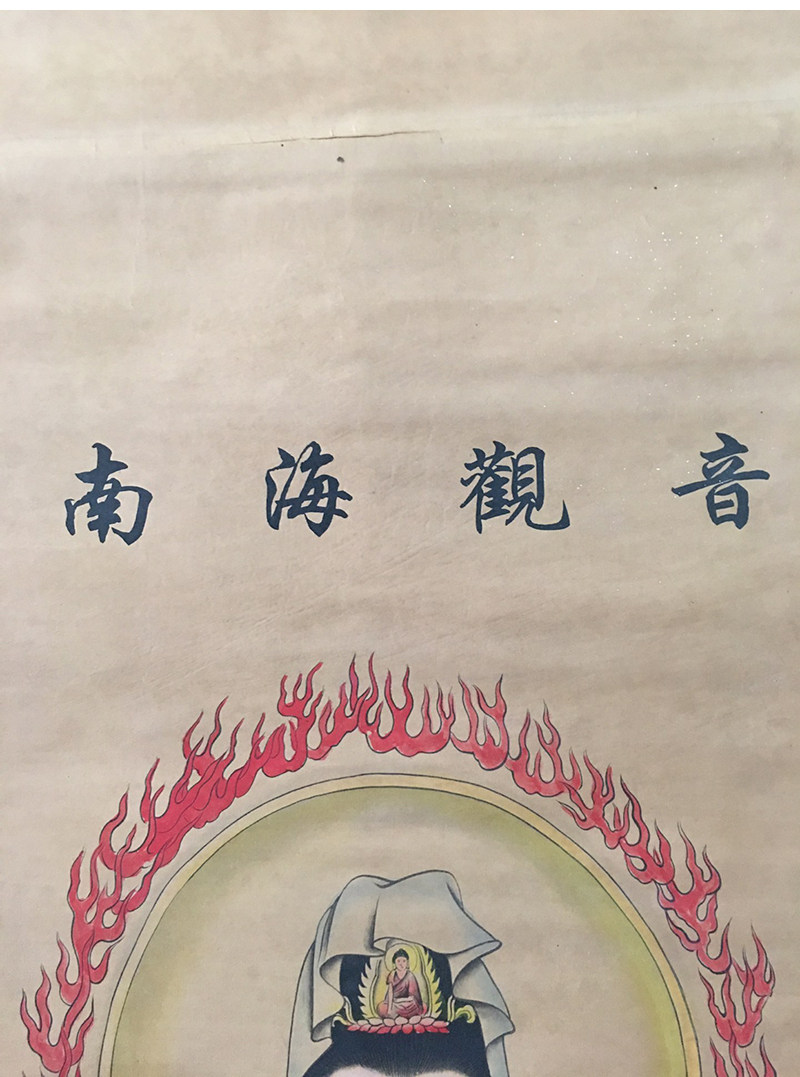 南海觀音